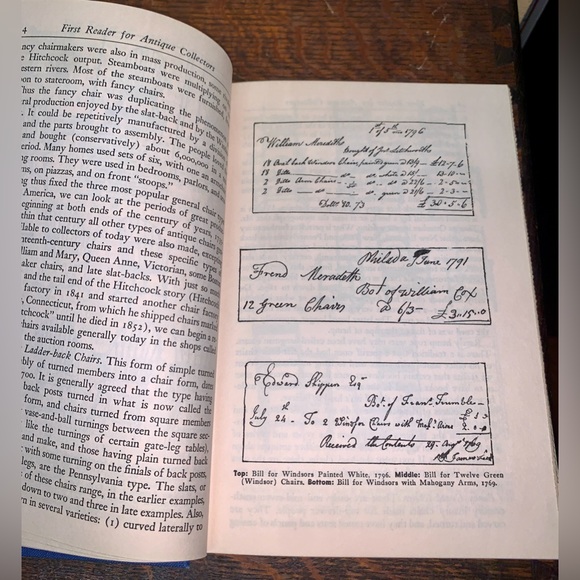 4 First Reader for Antique Collectors
ncy chairmakers were also in mass production, some
e Hitchcock output. Steamboats were multiplying
estern rivers. Most of the steamboats were furnished
on to stateroom, with fancy chairs.
hus the fancy chair was duplicating the phenomenon
ral production enjoyed by the slat-back and by the
. It could be repetitively manufactured by a
and the parts brought to assembly. The people
and bought (conservatively) about 6,000,000 in a
eriod. Many homes used sets of six, with one an
ng rooms. They were used in bedrooms, parlors, and
ms, on piazzas, and on front "stoops."
g thus fixed the three most popular general chair
America, we can look at the periods of great
eginning at both ends of the century of years,
thin that century all other types of antique chairs
lable to collectors of today were also made, except
nteenth-century chairs and these specific types
lliam and Mary, Queen Anne, Victorian, some Boston
aker chairs, and late slat-backs. With just so
and the tail end of the Hitchcock story (Hitchcock
factory in 1841 and started another chair factory
, Connecticut, from which he shipped chairs marked
tchcock" until he died in 1852), we can begin a
hairs available generally today in the shops called
the auction rooms.
Ladder-back Chairs. This form of simple turned
bly of turned members into a chair form, dates
700. It is generally agreed that the type having
back posts turned in what is now called the
form, and chairs turned from square members
vase-and-ball turnings between the square sec-
like the turnings of certain gate-leg tables),
and make, and those having plain turned back
with some turning on the finials of back posts,
legs, are the Pennsylvania type. The slats, or
of these chairs range, in the earlier examples,
down to two and three in late examples. Also,
n in several varieties: (1) curved laterally to
5th 1796
William Meredith
Bought of
18 Oval back Windsor Chairs painted green
£ 30.5.6
Philada June 1791
Frend Meredith
Bot of William Cox
12 Green Chairs @ 6/3 — £3..15..0
Edward Shippen Esqr
Bot. of Frans. Trumble
July 24th To 2 Windsor Chairs with Mahy. Arms
Received the Contents 1769
Top: Bill for Windsors Painted White, 1796. Middle: Bill for Twelve Green
(Windsor) Chairs. Bottom: Bill for Windsors with Mahogany Arms, 1769.